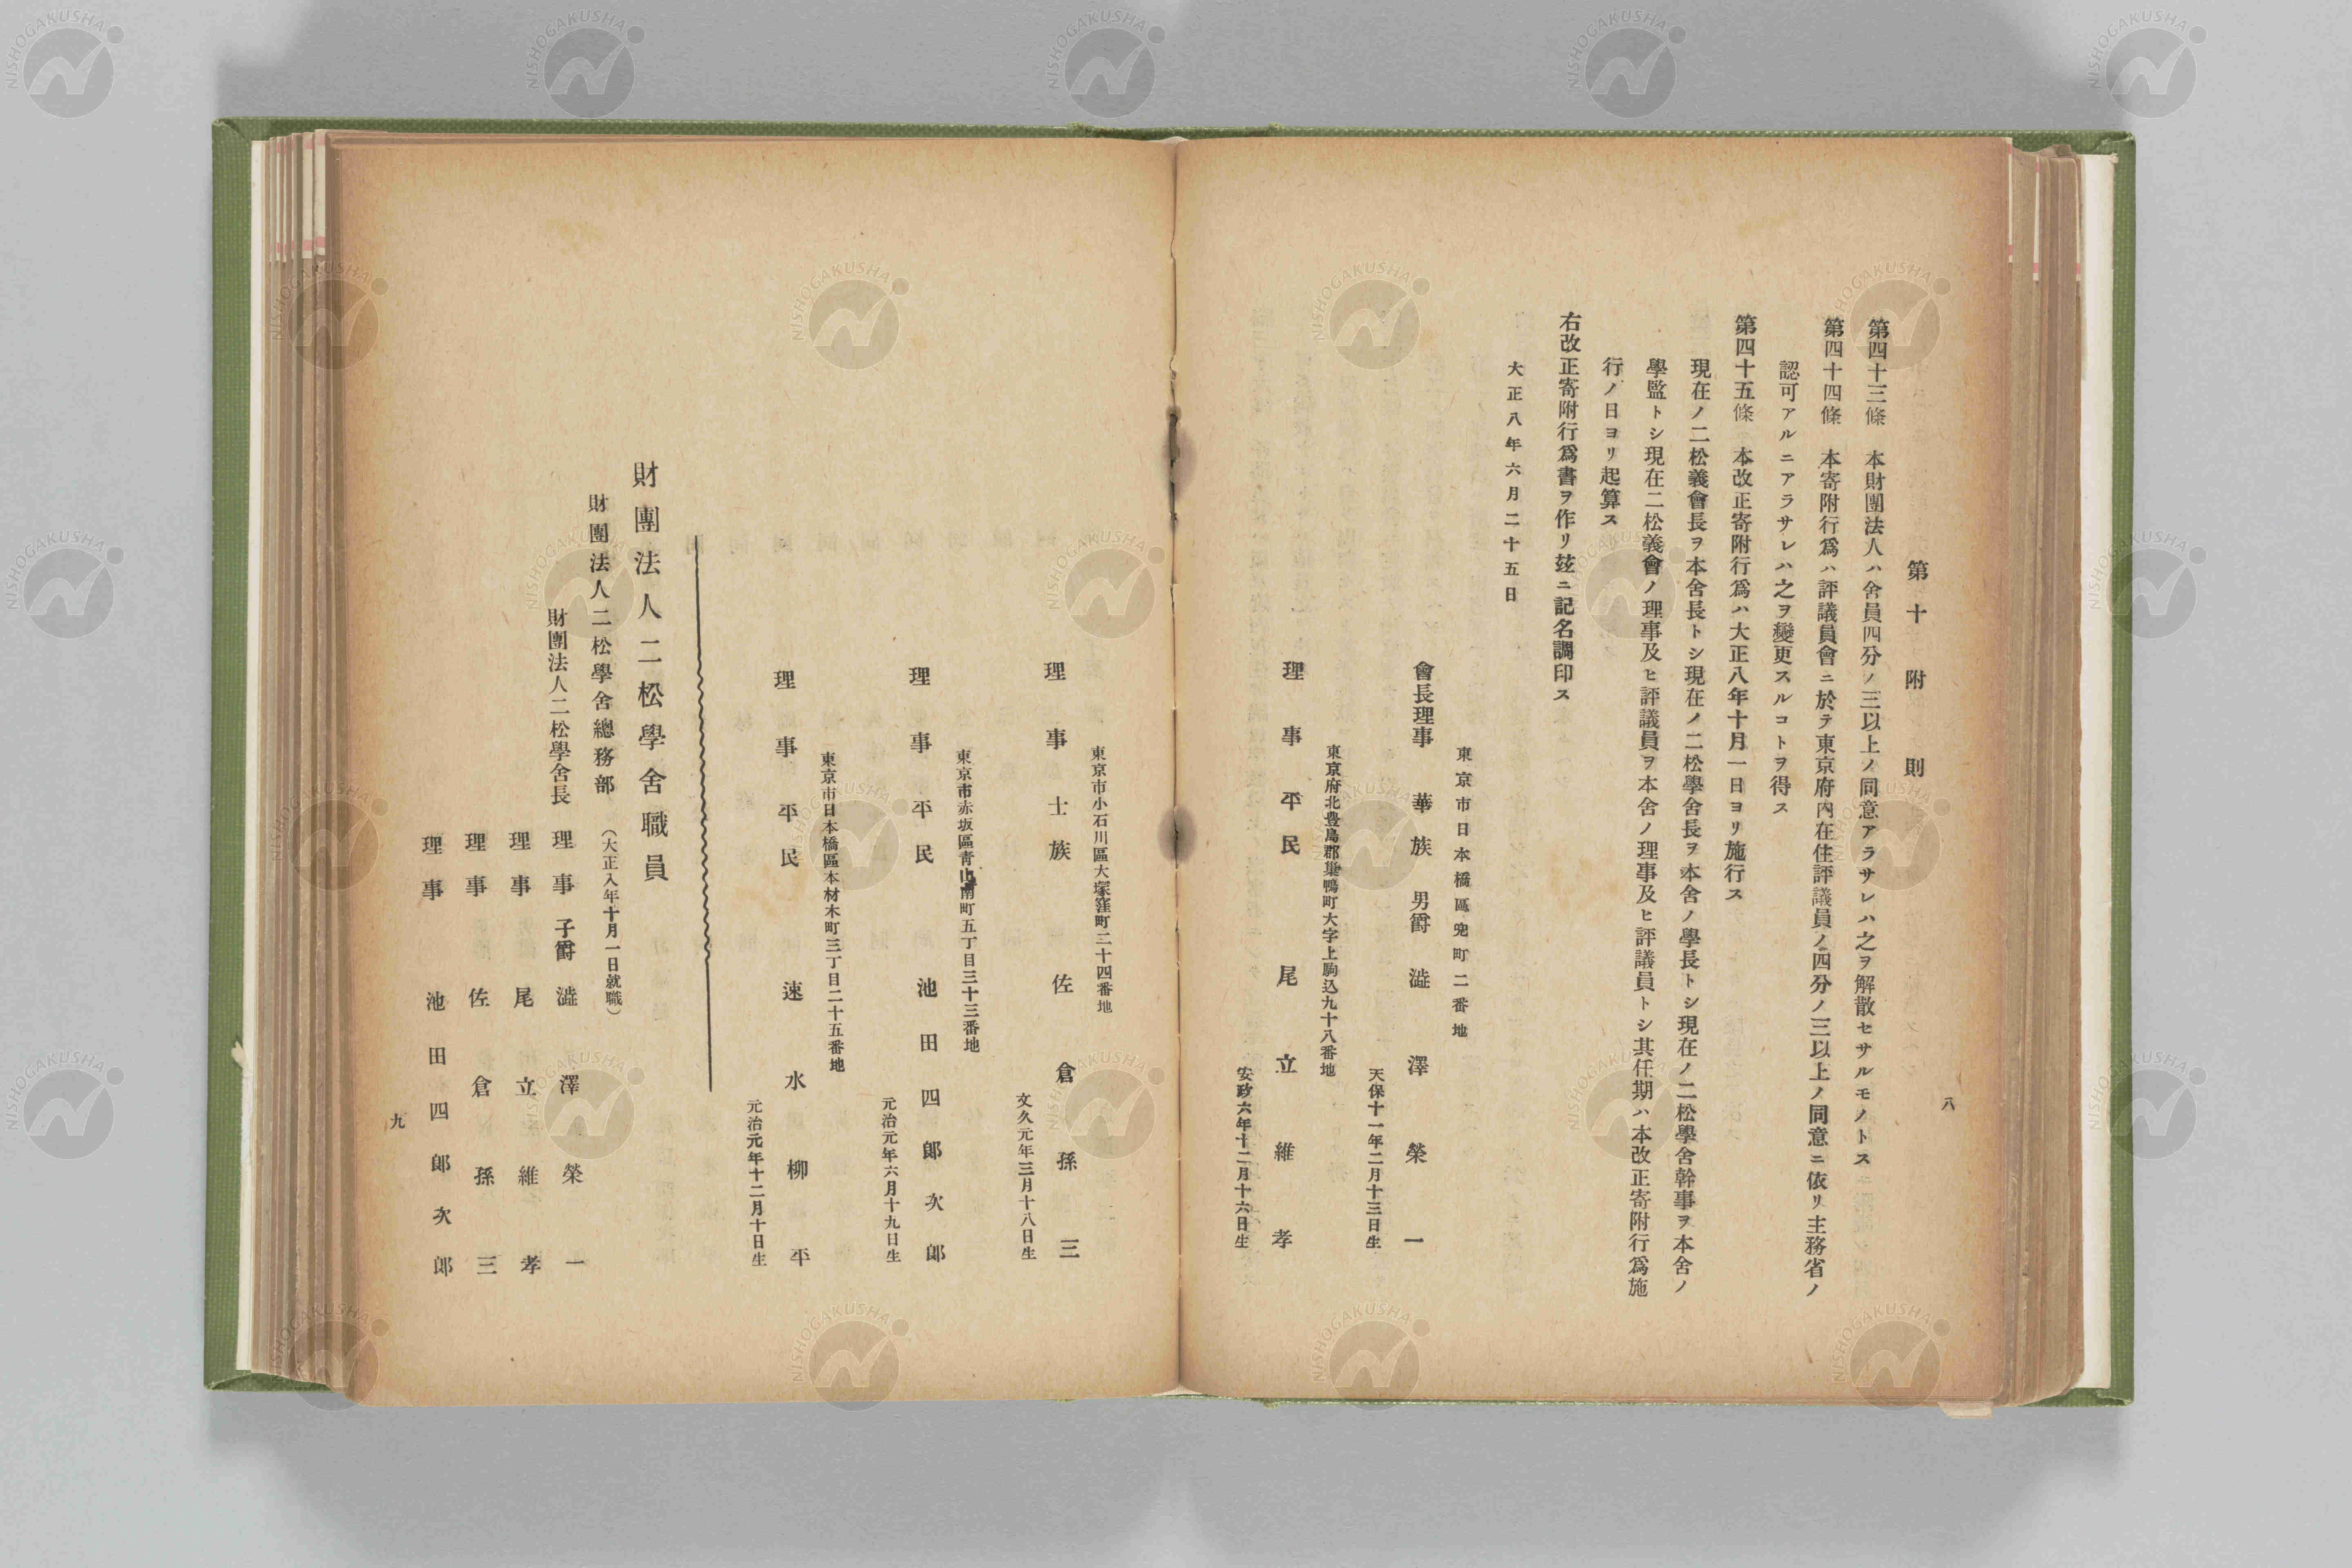 八
第十 附則
第四十三條 本財團法人ハ舍員四分ノ三以上ノ同意アラサレハ之ヲ解散セサルモノトス
第四十四條 本寄附行爲ハ評議員會ニ於テ東京府內在住評議員ノ四分ノ三以上ノ同意ニ依リ主務省ノ
認可アルニアラサレハ之ヲ變更スルコトヲ得ス
第四十五條 本改正寄附行爲ハ大正八年十月一日ヨリ施行ス
現在ノ二松義會長ヲ本舍長トシ現在ノ二松學舍長ヲ本舍ノ學長トシ現在ノ二松學舍幹事ヲ本舍ノ
學監トシ現在二松義會ノ理事及ヒ評議員ヲ本舍ノ理事及ヒ評議員トシ其任期ハ本改正寄附行爲施
行ノ日ヨリ起算ス
右改正寄附行爲書ヲ作リ玆ニ記名調印ス
大正八年六月二十五日
東京市日本橋區兜町二番地
會長理事 華族 男爵 澁澤榮一
天保十一年二月十三日生
東京府北豊島郡巢鴨町大字上駒込九十八番地
理事 平民 尾立維孝
安政六年十二月十六日生
東京市小石川區大塚窪町二十四番地
理事 士族 佐倉孫三
文久元年三月十八日生
東京市赤坂區靑山南町五丁目三十三番地
理事 平民 池田四郎次郎
元治元年六月十九日生
東京市日本橋區本材木町三丁目二十五番地
理事 平民 速水柳平
元治元年十二月十日生
財團法人二松學舍職員
財團法人二松學舍總務部 (大正八年十月一日就職)
財團法人二松學舍長 理事 子爵 澁澤榮一
理事 尾立維孝
理事 佐倉孫三
理事 池田四郎次郎
九
NISHOGAKUSHA